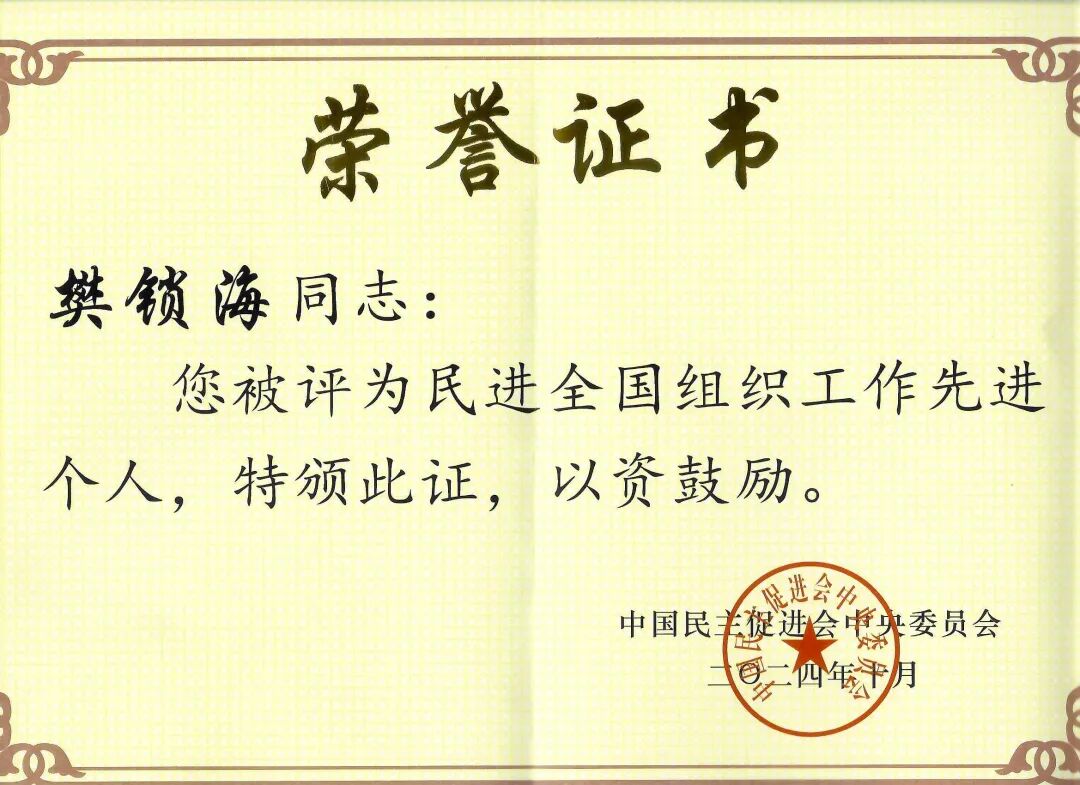 荣誉证书
樊锁海同志：
您被评为民进全国组织工作先进
个人，特颁此证，以资鼓励。
中国民主促进会中央委员会
二〇二四年十月
中国民主促进会中央委员会